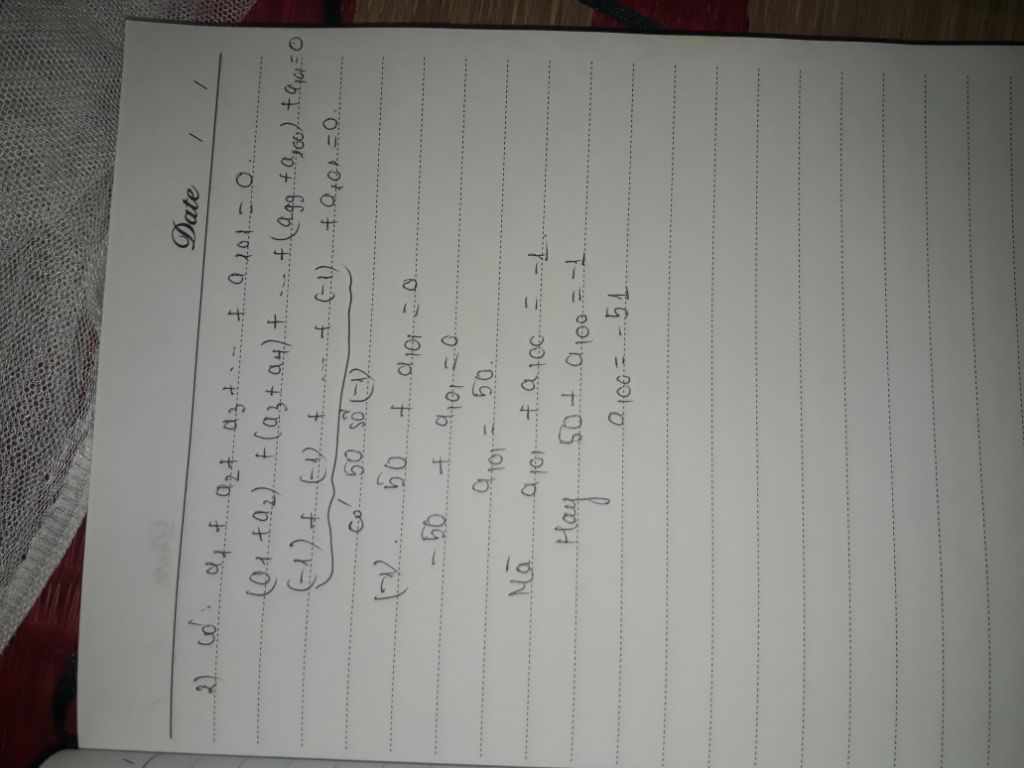 Date / /
2) Có: a₁ + a₂ + a₃ + ... + a₁₀₁ = 0.
(a₁ + a₂) + (a₃ + a₄) + ... + (a₉₉ + a₁₀₀) + a₁₀₁ = 0
(-1) + (-1) + ... + (-1) + a₁₀₁ = 0.
có 50 số (-1)
(-1). 50 + a₁₀₁ = 0
-50 + a₁₀₁ = 0
a₁₀₁ = 50.
Mà a₁₀₁ + a₁₀₀ = -1
Hay 50 + a₁₀₀ = -1
a₁₀₀ = -51